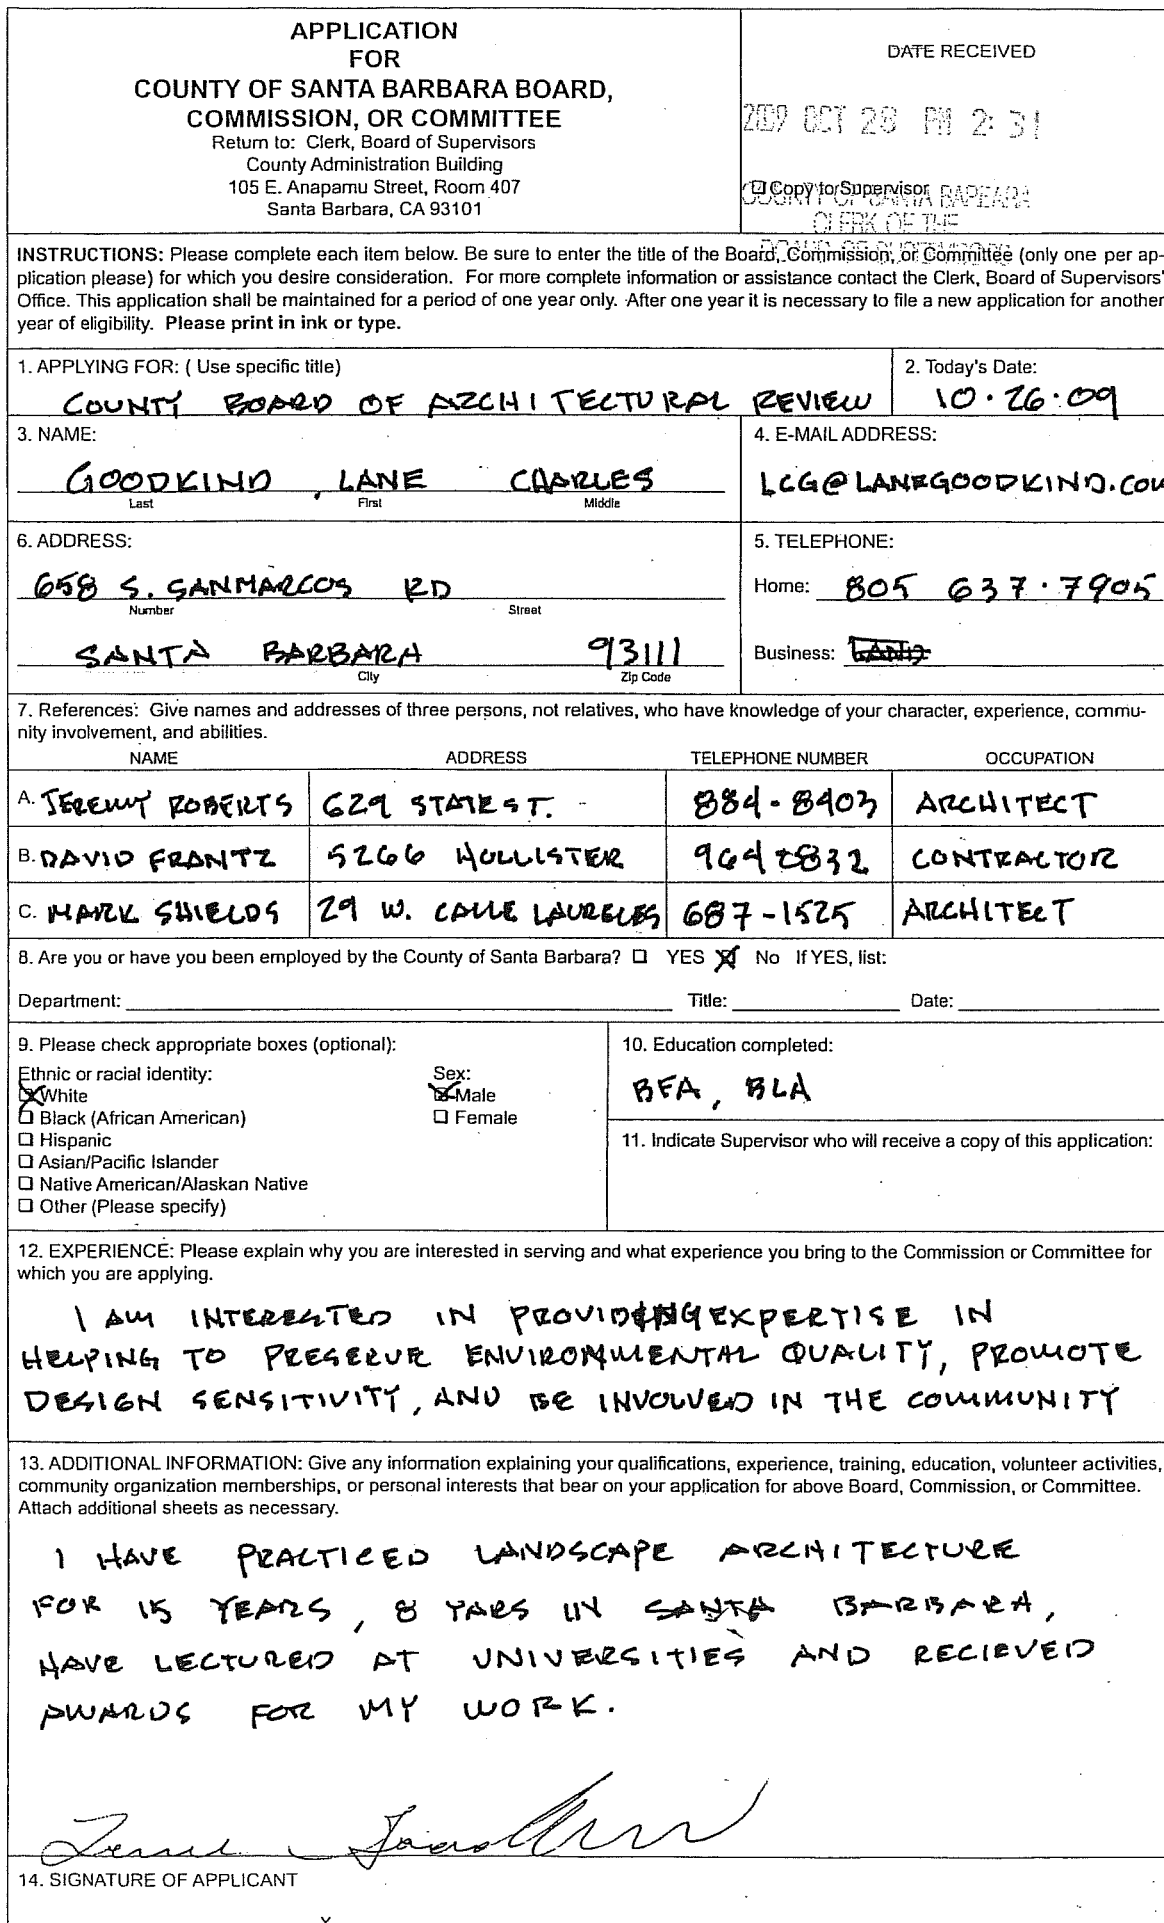 APPLICATION
FOR
COUNTY OF SANTA BARBARA BOARD,
COMMISSION, OR COMMITTEE
Return to: Clerk, Board of Supervisors
County Administration Building
105 E. Anapamu Street, Room 407
Santa Barbara, CA 93101
DATE RECEIVED
2009 OCT 28 PM 2:31
Copy to Supervisor
COUNTY OF SANTA BARBARA
CLERK OF THE
BOARD OF SUPERVISORS
INSTRUCTIONS: Please complete each item below. Be sure to enter the title of the Board, Commission, or Committee (only one per ap-
plication please) for which you desire consideration. For more complete information or assistance contact the Clerk, Board of Supervisors'
Office. This application shall be maintained for a period of one year only. After one year it is necessary to file a new application for another
year of eligibility. Please print in ink or type.
1. APPLYING FOR: ( Use specific title)
COUNTY BOARD OF ARCHITECTURAL REVIEW
2. Today's Date:
10·26·09
3. NAME:
GOODKIND, LANE CHARLES
Last First Middle
4. E-MAIL ADDRESS:
LCG@LANEGOODKIND.COM
6. ADDRESS:
658 S. SANMARCOS RD
Number Street
SANTA BARBARA 93111
City Zip Code
5. TELEPHONE:
Home: 805 637·7905
Business:
7. References: Give names and addresses of three persons, not relatives, who have knowledge of your character, experience, commu-
nity involvement, and abilities.
NAME ADDRESS TELEPHONE NUMBER OCCUPATION
A. JEREMY ROBERTS 629 STATE ST. 884-8403 ARCHITECT
B. DAVID FRANTZ 5266 HOLLISTER CONTRACTOR
C. MARK SHIELDS 29 W. CALLE LAURELES 687-1525 ARCHITECT
8. Are you or have you been employed by the County of Santa Barbara? YES No If YES, list:
Department: Title: Date:
9. Please check appropriate boxes (optional):
Ethnic or racial identity: Sex:
White Male
Black (African American) Female
Hispanic
Asian/Pacific Islander
Native American/Alaskan Native
Other (Please specify)
10. Education completed:
BFA, BLA
11. Indicate Supervisor who will receive a copy of this application:
12. EXPERIENCE: Please explain why you are interested in serving and what experience you bring to the Commission or Committee for
which you are applying.
I AM INTERESTED IN PROVIDING EXPERTISE IN
HELPING TO PRESERVE ENVIRONMENTAL QUALITY, PROMOTE
DESIGN SENSITIVITY, AND BE INVOLVED IN THE COMMUNITY
13. ADDITIONAL INFORMATION: Give any information explaining your qualifications, experience, training, education, volunteer activities,
community organization memberships, or personal interests that bear on your application for above Board, Commission, or Committee.
Attach additional sheets as necessary.
I HAVE PRACTICED LANDSCAPE ARCHITECTURE
FOR 15 YEARS, 8 YARS IN SANTA BARBARA,
HAVE LECTURED AT UNIVERSITIES AND RECIEVED
AWARDS FOR MY WORK.
14. SIGNATURE OF APPLICANT